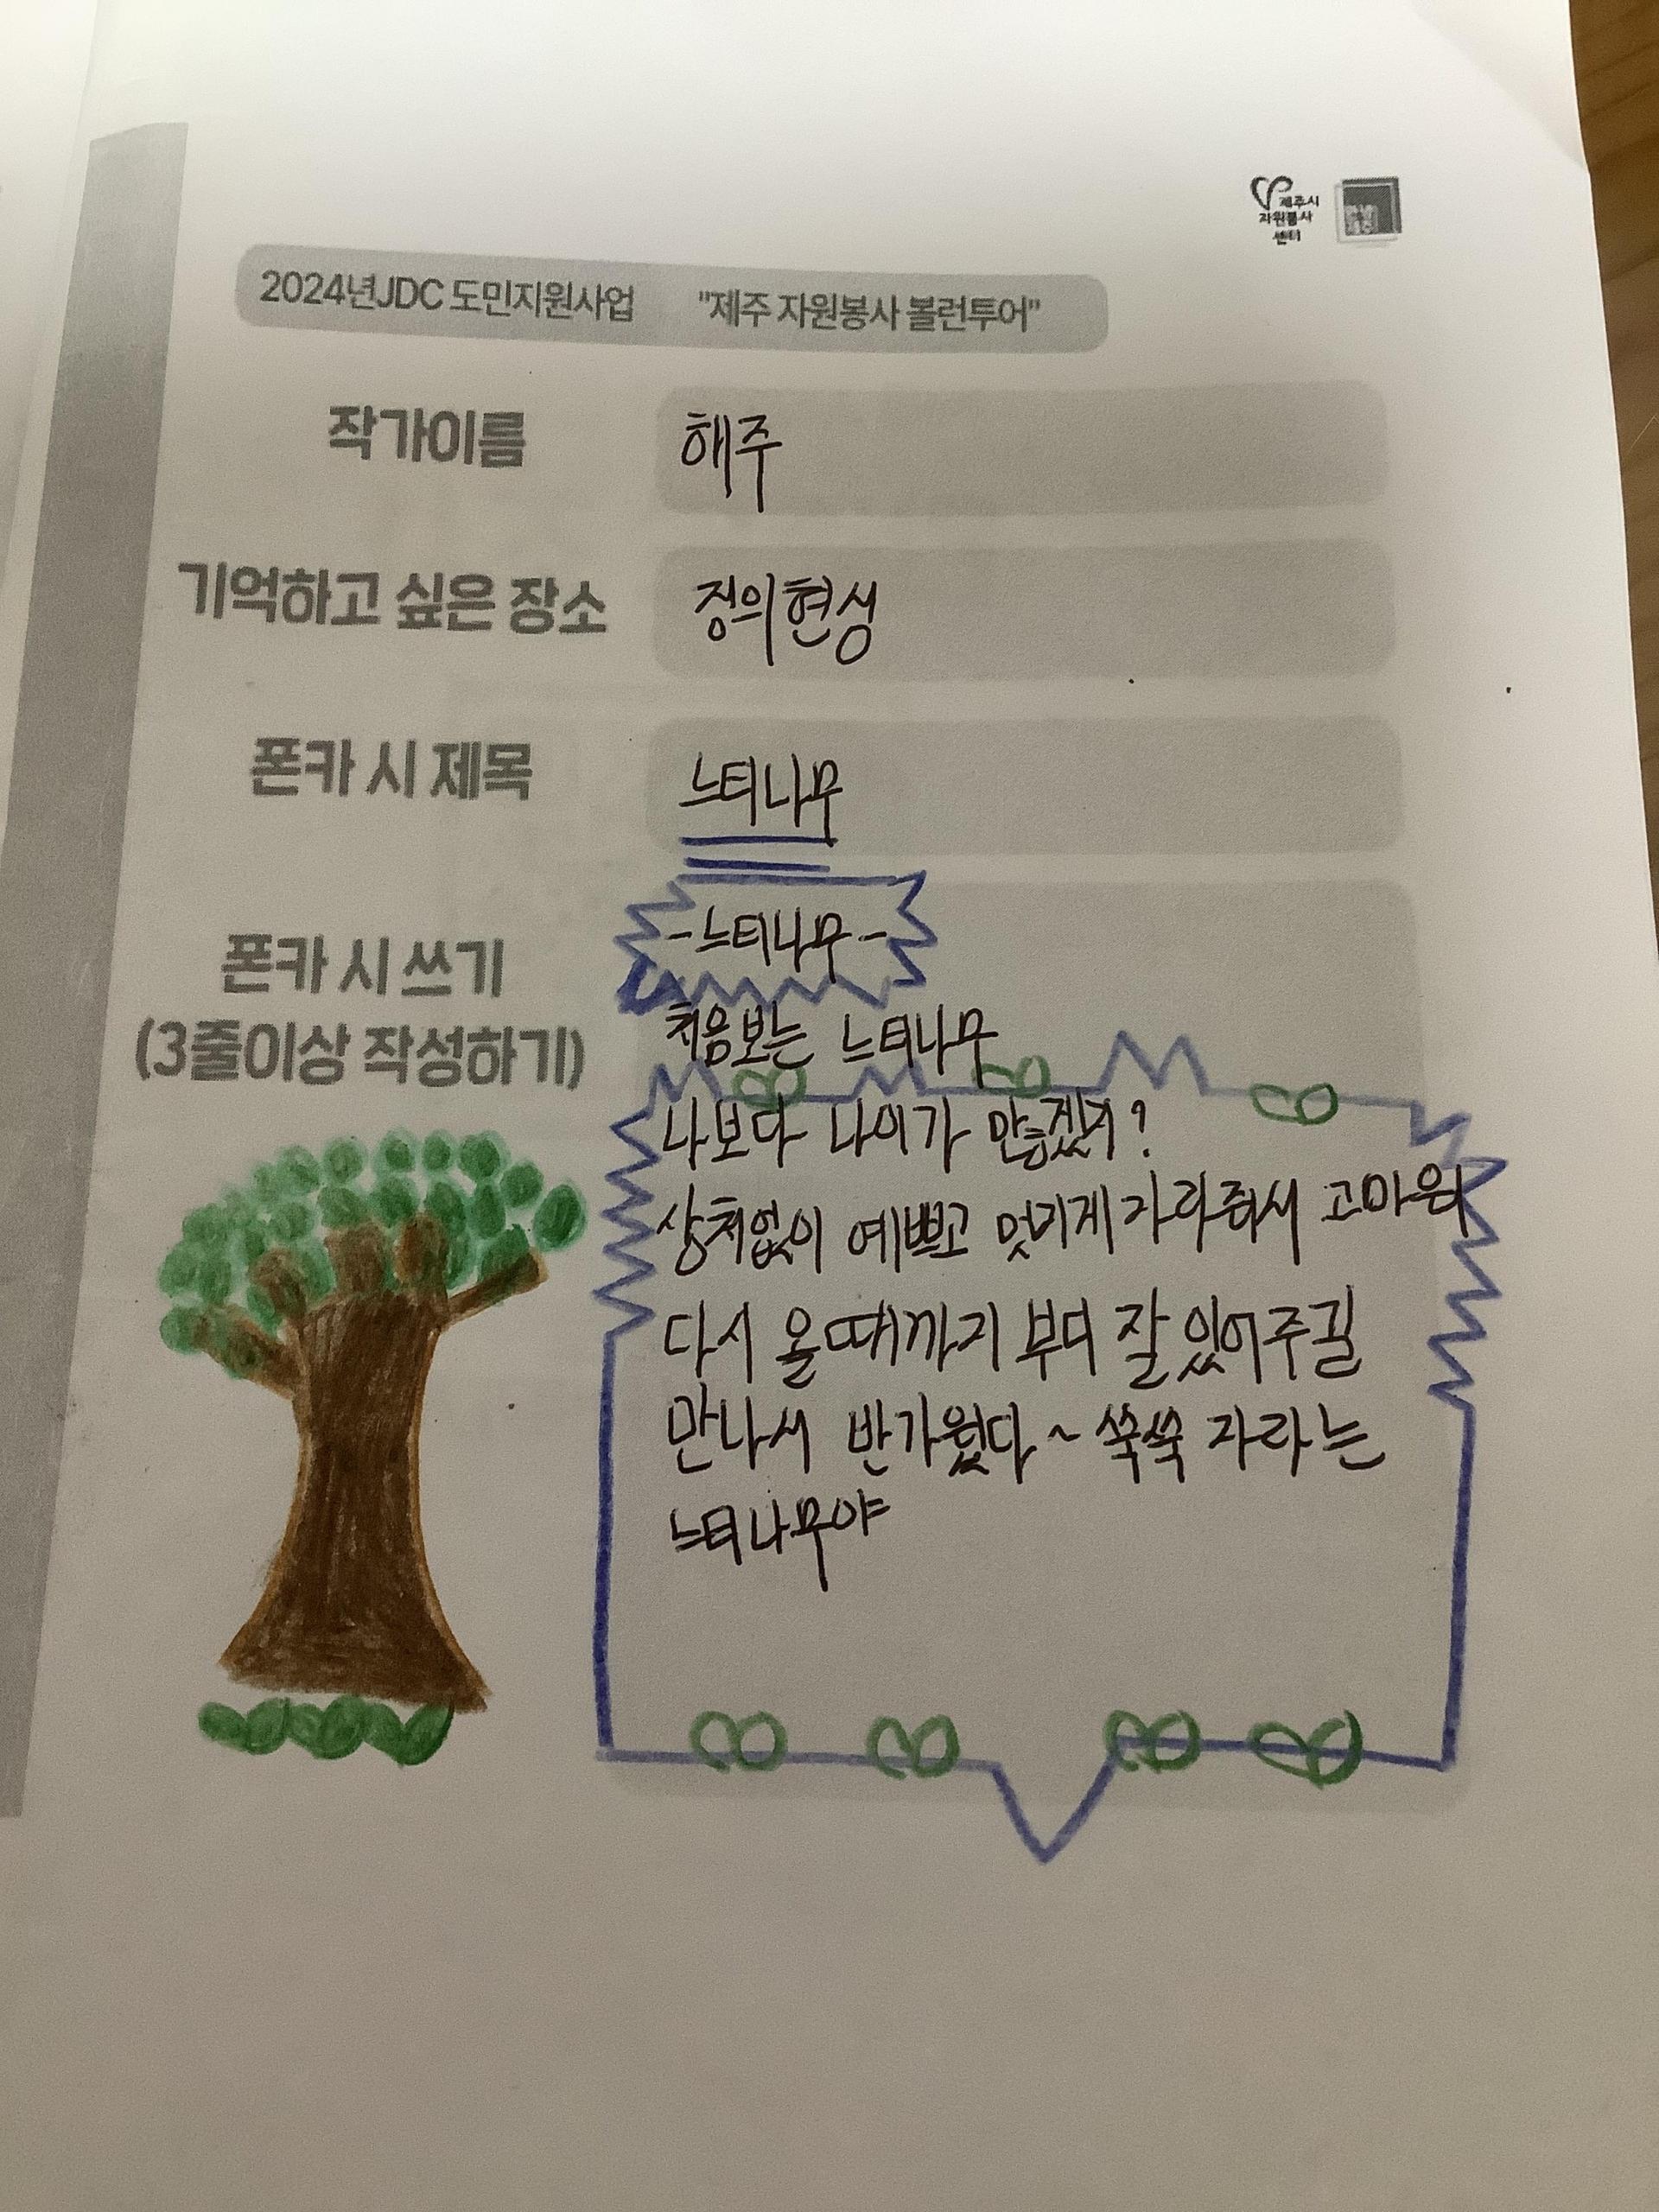 제주시
자원봉사
센터
2024년JDC 도민지원사업 "제주 자원봉사 볼런투어"
작가이름 해주
기억하고 싶은 장소 정의현성
폰카 시 제목 느티나무
폰카 시 쓰기
(3줄이상 작성하기)
-느티나무-
처음보는 느티나무
나보다 나이가 많겠지?
상처없이 예쁘고 멋지게 자라줘서 고마워
다시 올때까지 부디 잘 있어주길
만나서 반가웠다~ 쑥쑥 자라는
느티나무야